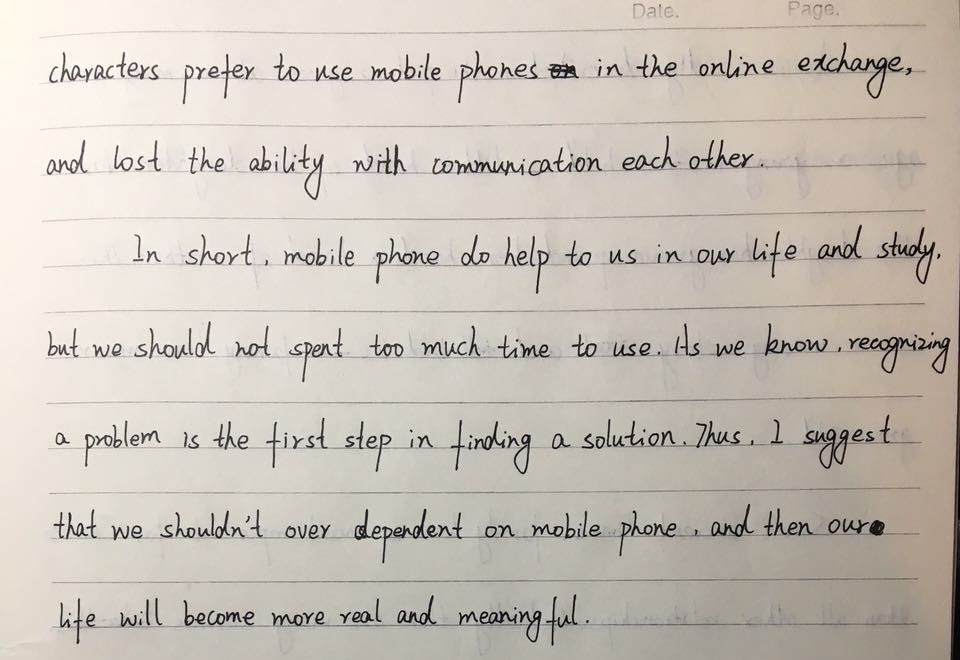 Date. Page.
characters prefer to use mobile phones in the online exchange,
and lost the ability with communication each other.
In short, mobile phone do help to us in our life and study,
but we should not spent too much time to use. As we know, recognizing
a problem is the first step in finding a solution. Thus, I suggest
that we shouldn't over dependent on mobile phone, and then our
life will become more real and meaningful.